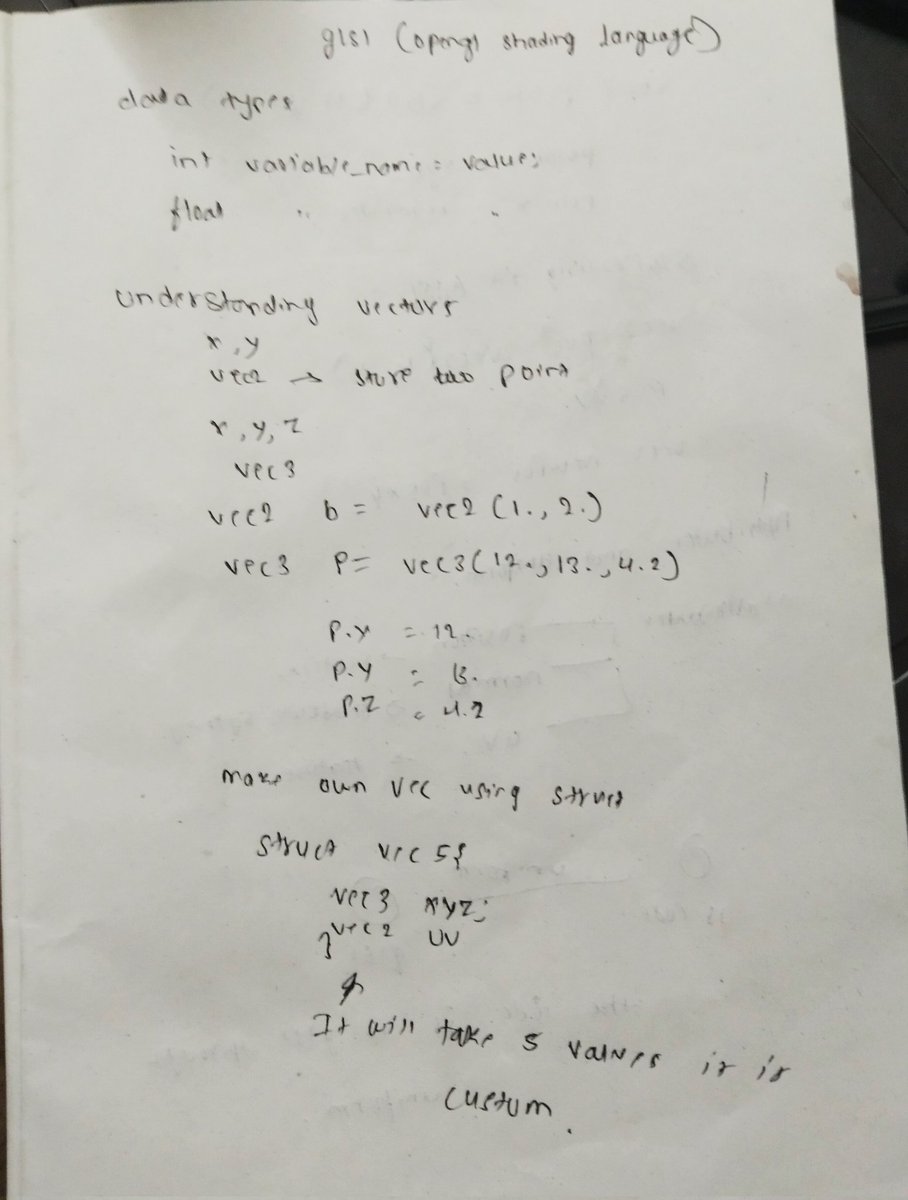 glsl (opengl shading language)
data types
int variable_name = value;
float " "
understanding vectors
x, y
vec2 → store two point
x, y, z
vec3
vec2 b = vec2 (1., 2.)
vec3 p = vec3(12., 13., 4.2)
p.x = 12.
p.y = 13.
p.z = 4.2
make own vec using struct
struct vec5{
vec3 xyz;
vec2 uv
}
It will take 5 values it is
custom.